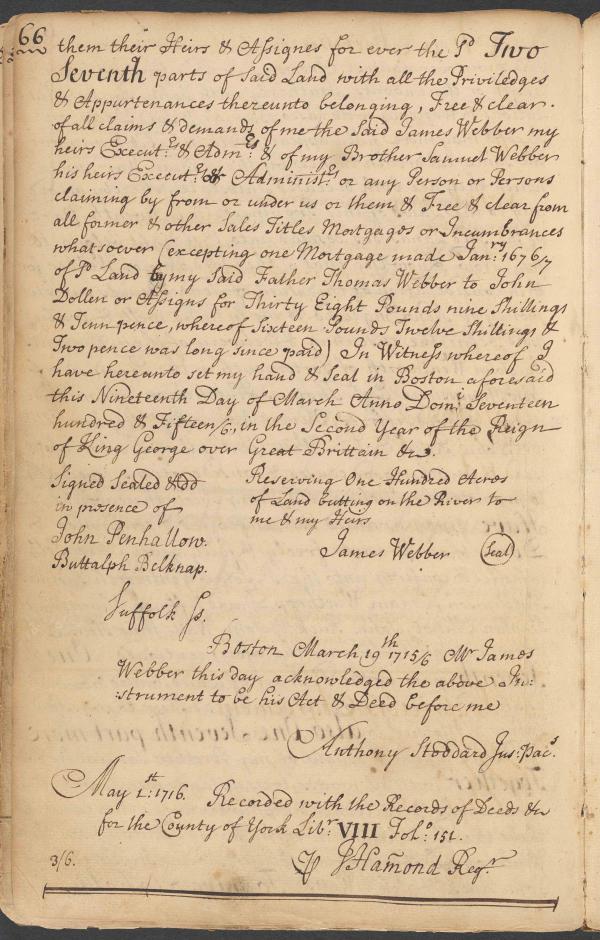 66
them their Heirs & Assignes for ever the sd Two
Seventh parts of said Land with all the Priviledges
& Appurtenances thereunto belonging, Free & clear
of all claims & demands of me the said James Webber my
heirs Executrs & Admrs & of my Brother Samuel Webber
his heirs Executrs & Administrs or any Person or Persons
claiming by from or under us or them & Free & clear from
all former & other Sales Titles Mortgages or Incumbrances
whatsoever (excepting one Mortgage made Janry: 1676/7
of sd Land by my said Father Thomas Webber to John
Dollen or Assigns for Thirty Eight Pounds nine Shillings
& Tenn pence, whereof Sixteen Pounds Twelve Shillings &
Two pence was long since paid) In Witness whereof I
have hereunto set my hand & Seal in Boston aforesaid
this Nineteenth Day of March Anno Domi: Seventeen
hundred & Fifteen/6, in the Second Year of the Reign
of King George over Great Brittain &c.
Signed Sealed & DD
in presence of
John Penhallow.
Buttalph Belknap.
Reserving One Hundred Acres
of Land butting on the River to
me & my Heirs
James Webber (Seal)
Suffolk Ss.
Boston March 19th 1715/6 Mr James
Webber this day acknowledged the above In:
:strument to be his Act & Deed before me
Anthony Stoddard Jus: Pacs.
May 1st: 1716. Recorded with the Records of Deeds &c
for the County of York Libr. VIII Folo: 151.
JHamond Regr.
3/6.